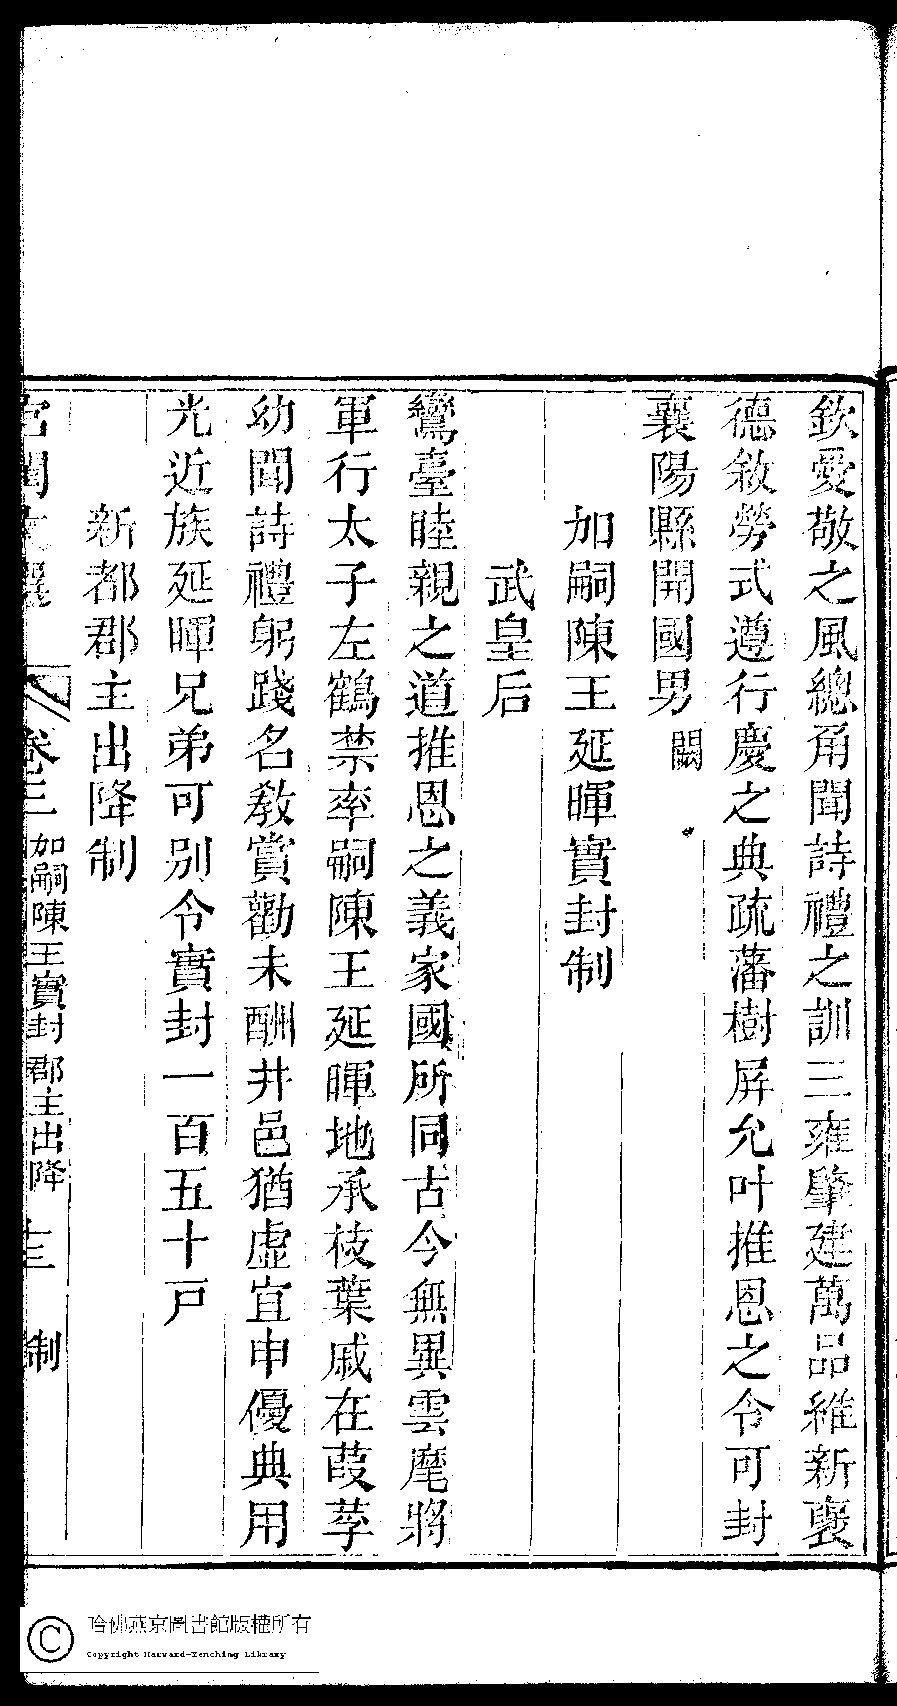 欽愛敬之風總甬聞詩禮之訓三雍肇建萬品維新襃
德敘勞式遵行慶之典疏藩樹屏允叶推恩之令可封
襄陽縣開國男闕
加嗣陳王延暉實封制
武皇后
鸞臺睦親之道推恩之義家國所同古今無異雲麾將
軍行太子左鶴禁率嗣陳王延暉地承枝葉戚在葭莩
幼聞詩禮躬踐名敎賞勸未酬井邑猶虛宜申優典用
光近族延暉兄弟可别令實封一百五十戸
新都郡主出降制
宮閨文選 卷三 加嗣陳王實封 郡主出降 十三 制
哈佛燕京圖書館版權所有
Copyright Harvard-Yenching Library